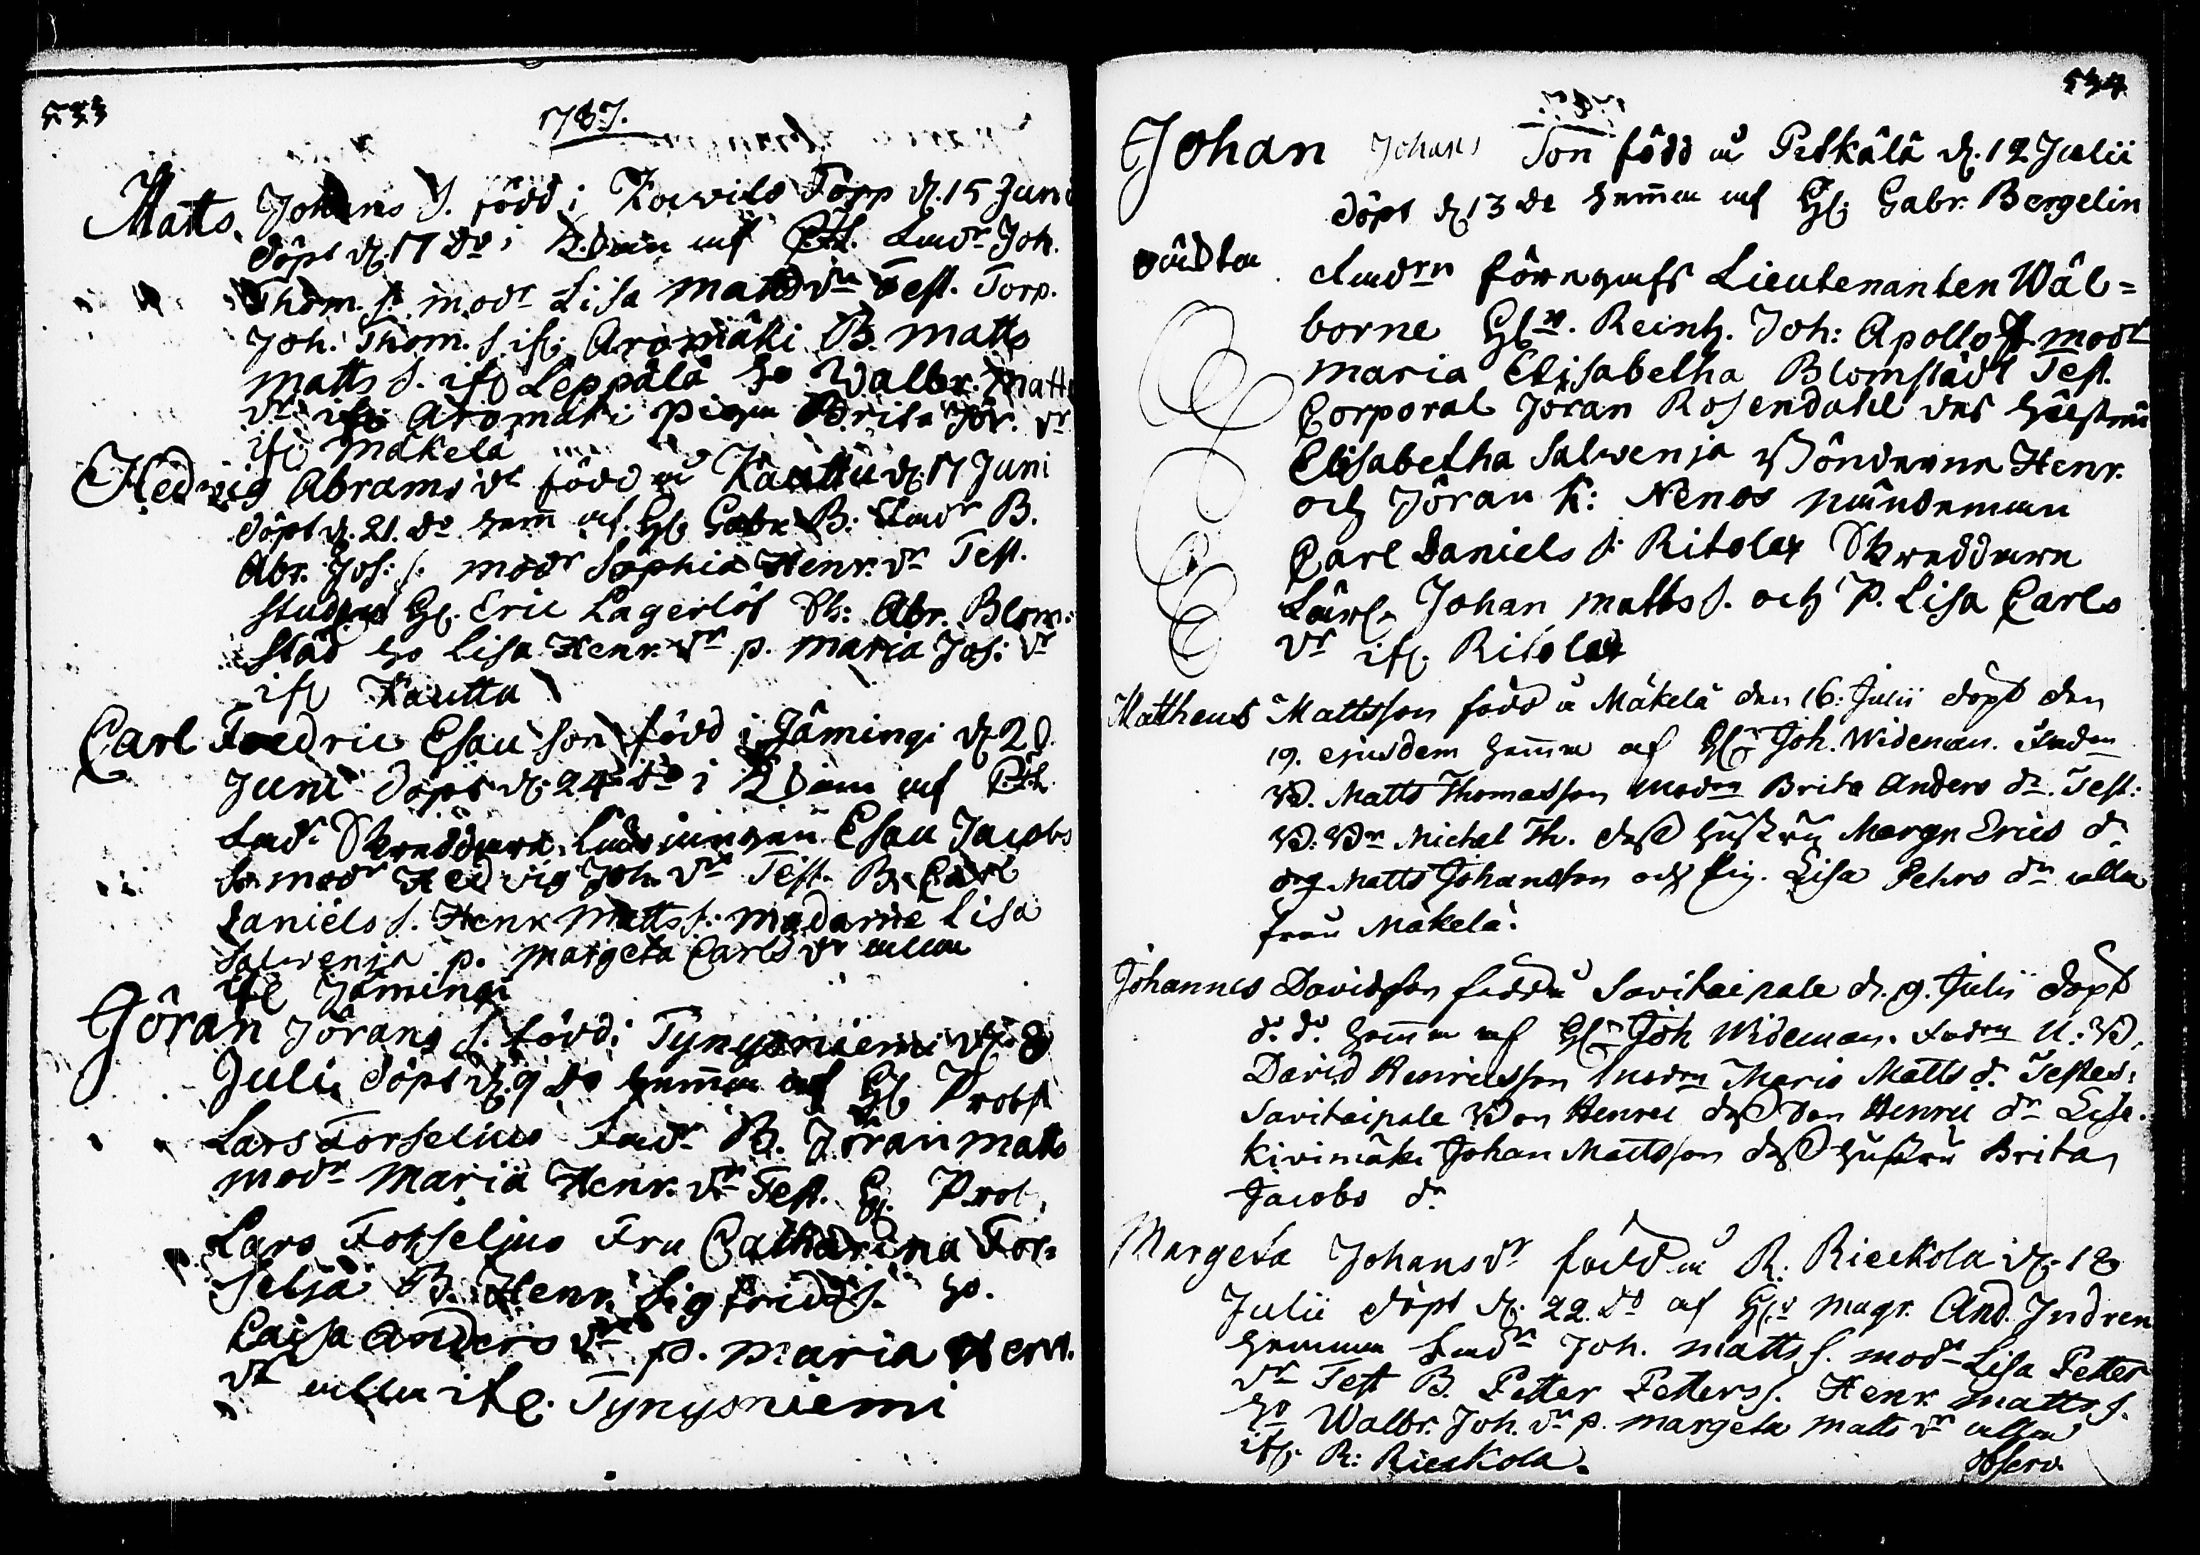 533
1787.
Matts Johans S. född i Kowilo Torp d. 15 Juni
döpt d. 17 do i af Fadr Joh.
Thom. S. modr Lisa Matts dr Test. Torp.
Joh. Thom. S. ifr. Aromäki B. Matts
Matts S. ifr Leppälä ho Walbr. Matts
dr ifr Aromäki pigan Brita Jör. dr
ifr Mäkelä
Hedwig Abrams dr född på Kauttu d. 17 Juni
döpt d. 21. do hem af Hr Gabr. B: Fadr B.
Abr. Jos: S. modr Sophia Henr. dr Test.
Hr. Eric Lagerlöf Sk: Abr. Blom:
städ ho Lisa Henr. dr p. Maria Jos: dr
ifr Kauttu
Carl Fredric Esau son född i Jämingi d. 20
Juni döpt d. 24 do i af
Fadr Skreddare Esau Jacobs
S. modr Hedvig Joh. dr Test. B. Carl
Daniels S. Henr. Matts S. Madame Lisa
Salwenia p. Margeta Carls dr alla
ifr Jämingi
Jöran Jörans S. född i Tynysniemi d. 8
Julii döpt d. 9 do hemma af Hr Probst
Lars Forselius Fadr B. Jöran Matts
modr Maria Henr. dr Test. Hr. Prob.
Lars Forseljus Fru Catharina For=
selia B. Henr. Sigfrids S. ho.
Caisa Anders dr p. Maria Henr.
dr alla ifr. Tynysniemi
534
1787
Johan Johans Son född på Pelkälä d. 12 Julii
döpt d. 13 do hemma af Hr. Gabr. Bergelin
oächta Fadren förregafs Lieutenanten Wäl=
borne Hrn. Reinh. Joh: Apollof modr
Maria Elisabetha Blomstädt Test.
Corporal Jöran Rosendahl des hustru
Elisabetha Salwenia Bönderne Henr.
och Jöran K: Nenos nämndeman
Carl Daniels S: Ritola Skreddare
Lärl. Johan Matts S. och P. Lisa Carls
dr ifr. Ritola
Mattheus Mattsson född å Mäkelä den 16. Julii döpt den
19. ejusdem hemma af Hr Joh. Wideman. Fadren
B. Matts Thomasson Modren Brita Anders dr. Test:
B: Bn Michel Th. dess hustru Margr Erics dr
drg Matts Johansson och Pig. Lisa Pehrs dr alla
från Mäkelä.
Johannes Davidsson född å Savitaipale d. 9. Julii döpt
d. do. hemma af Hr Joh Wideman. Fadren U: B.
David Henricsson Modren Maria Matts dr. Testes:
Savitaipale Bon Henric dess Son Henric dr Lisa.
Kivimäki Johan Mattsson dess hustru Brita
Jacobs dr
Margeta Johans dr född på R. Rieckola d. 18
Julii döpt d. 22. do af Hr Magr. And. Indren
hemma Fadr Joh. Matts S. modr Lisa Petter
dr Test B. Petter Petters S. Henr. Matts S.
ho Walbr. Joh. dr p. Margeta Matts dr alla
ifr. R: Rieckola.
Observ.